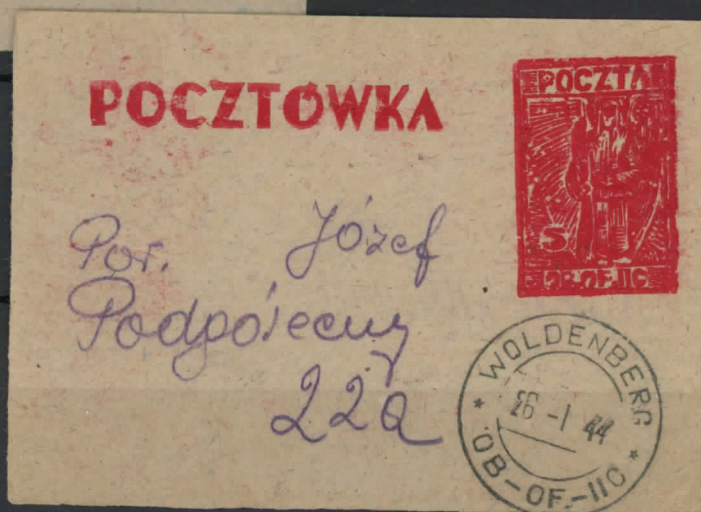 POCZTÓWKA
POCZTA
5
OB-OF-IIC
Por. Józef
Podpórecny
22a
WOLDENBERG
26 -I 44
* OB-OF.-IIC *